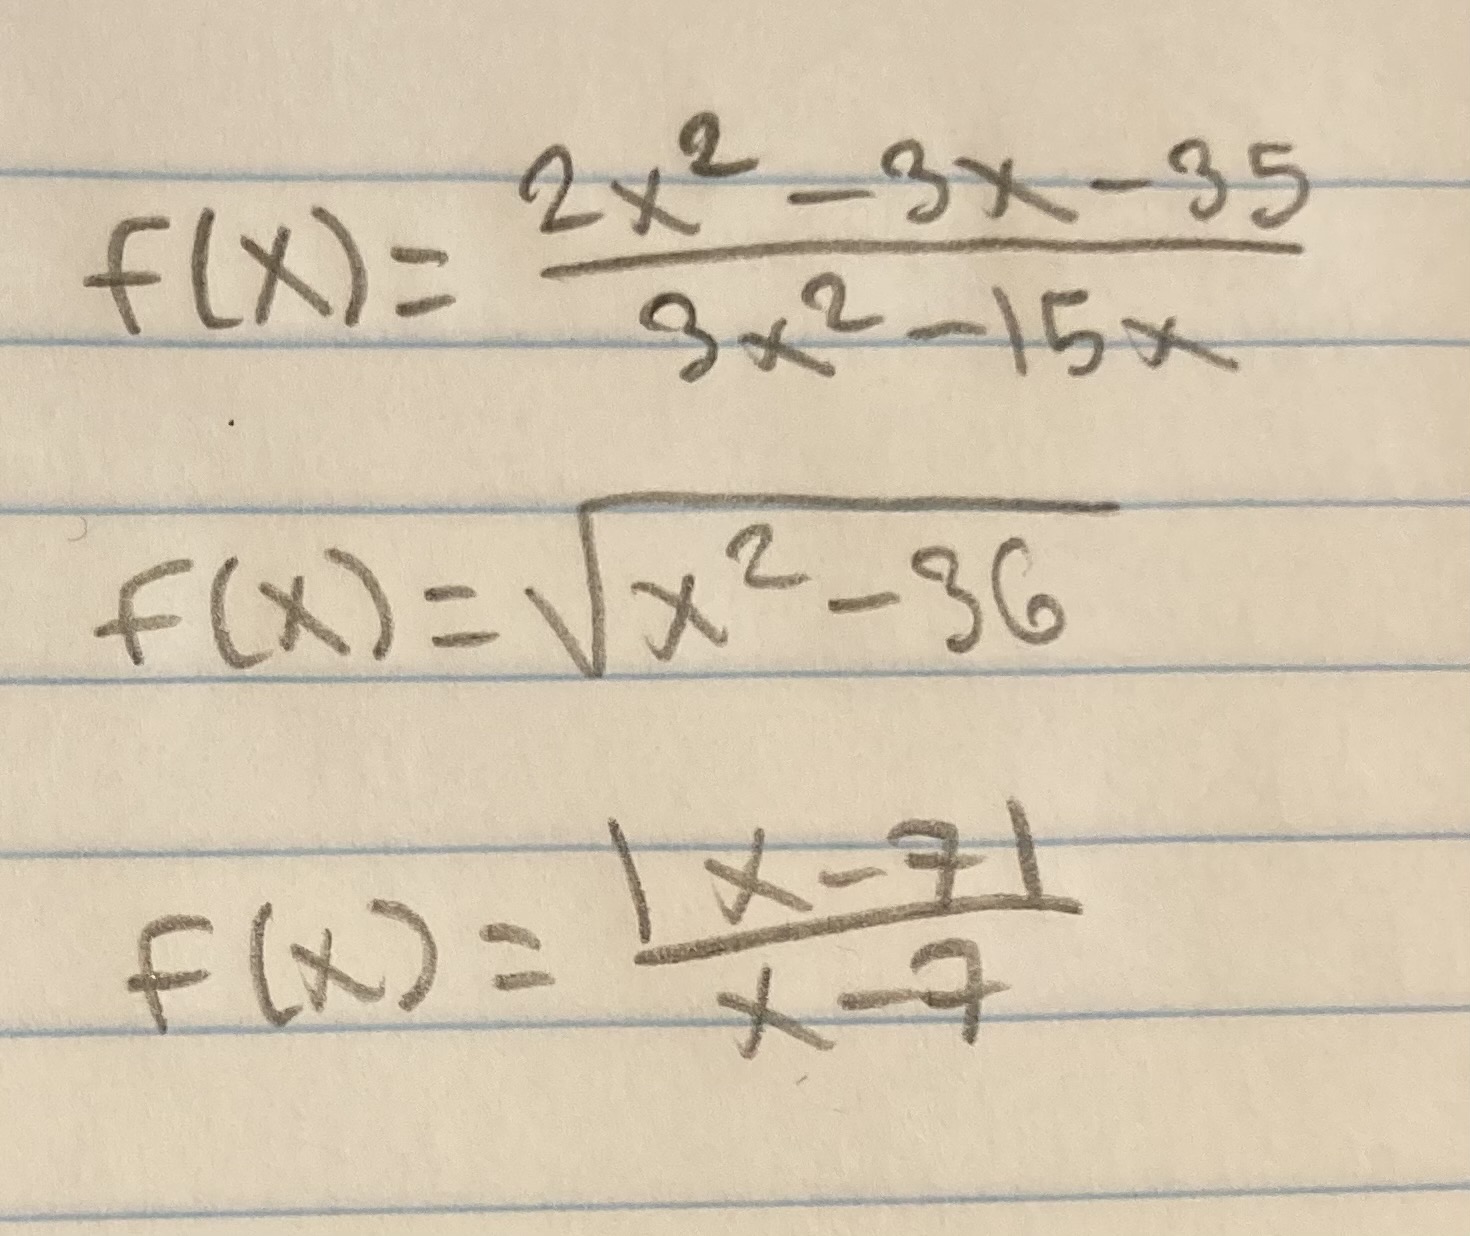 f(x) = (2x² - 3x - 35)/(3x² - 15x)
f(x) = √(x² - 36)
f(x) = |x - 7|/(x - 7)